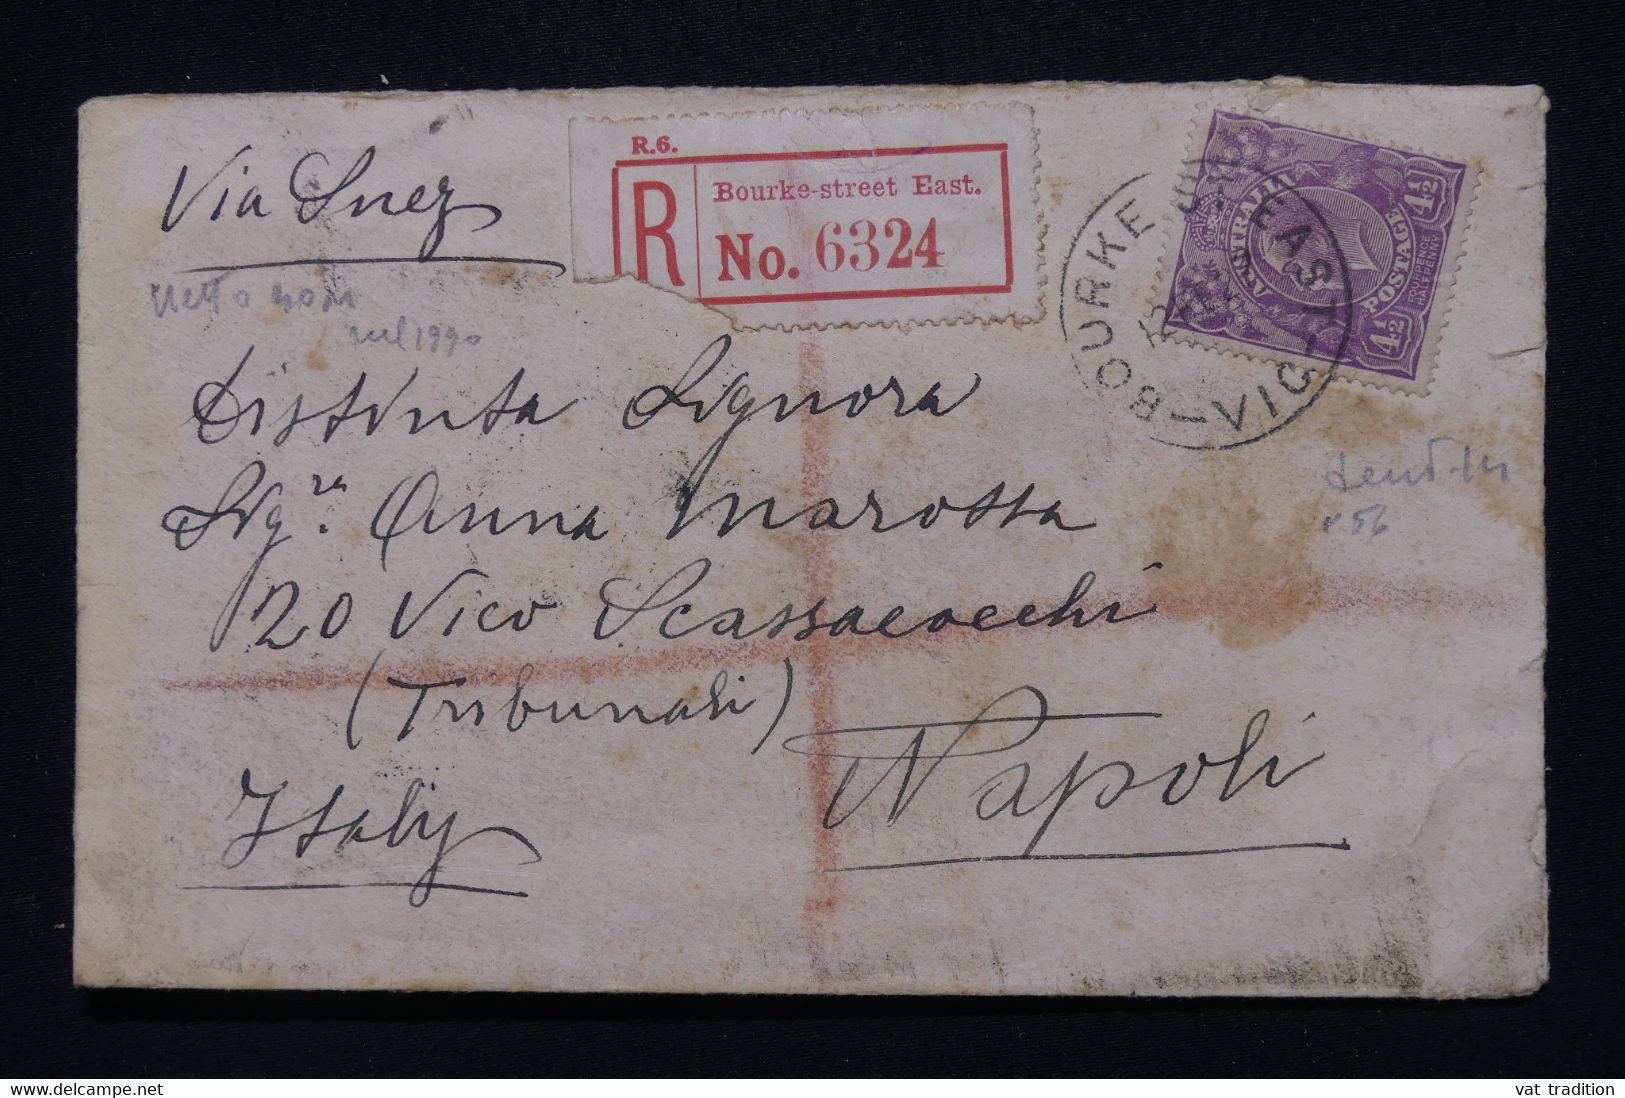 Via Suez
R.6.
R
Bourke-street East.
No. 6324
BOURKE EAST
VIC
AUSTRALIA
POSTAGE
4½
4½
FOURPENCE
HALFPENNY
1990
Distinta Signora
Sig.ra Anna Marotta
20 Vico Scassacocchi
(Tribunali)
Italy
Napoli
56
www.delcampe.net
vat tradition